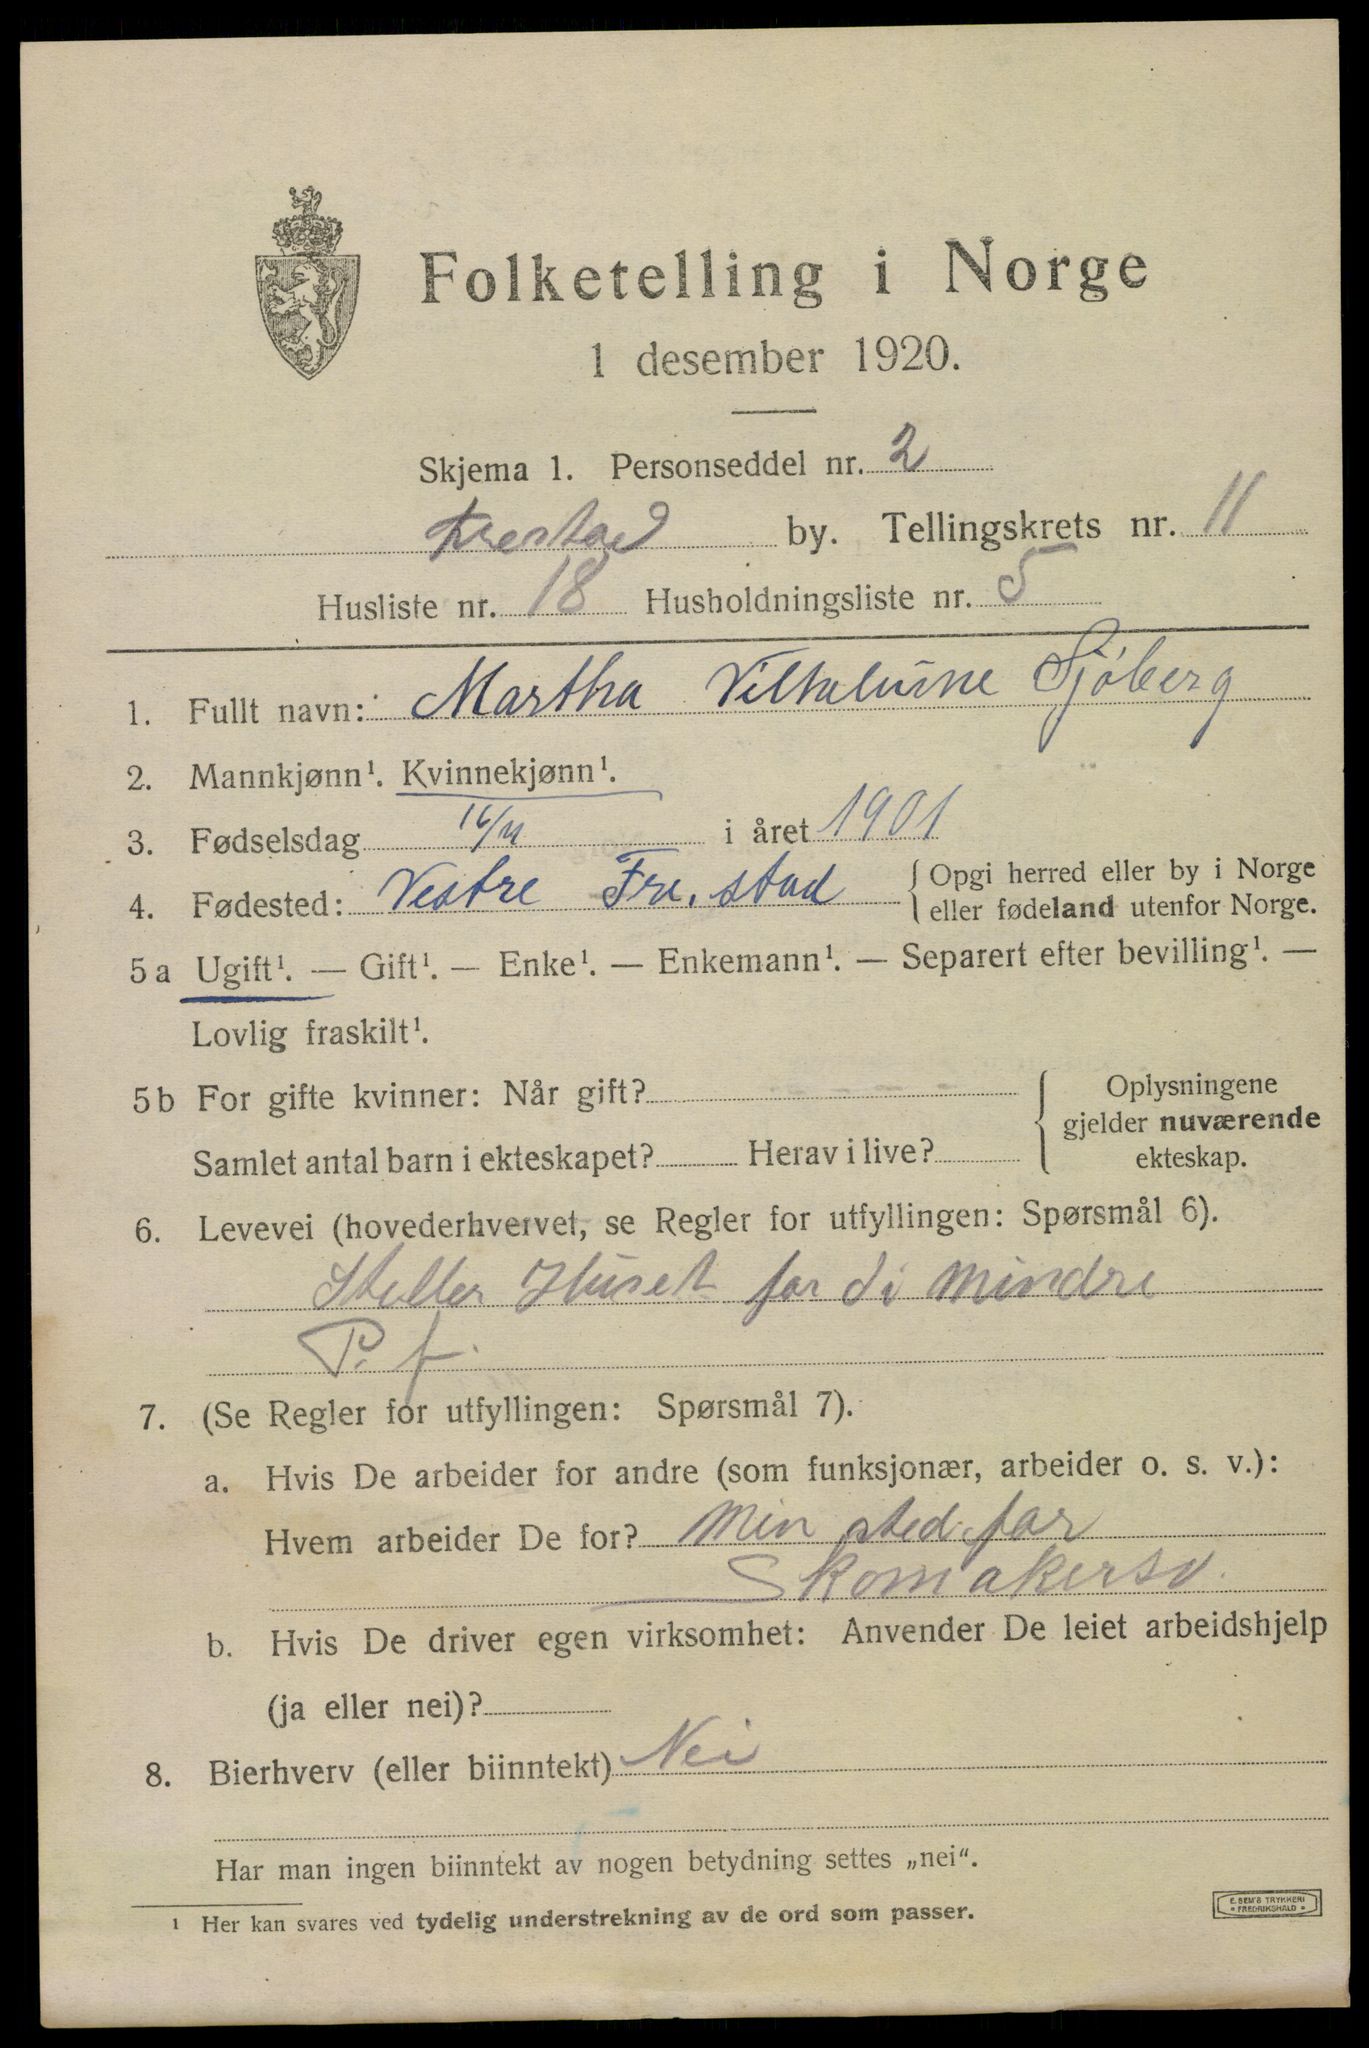 Folketelling i Norge
1 desember 1920.
Skjema 1. Personseddel nr. 2
Frestad by. Tellingskrets nr. 11
Husliste nr. 18 Husholdningsliste nr. 5
1. Fullt navn: Martha Vilhelmine Sjöberg
2. Mannkjønn¹. Kvinnekjønn¹.
3. Fødselsdag 16/11 i året 1901
4. Fødested: Vestre Fre.stad { Opgi herred eller by i Norge
eller fødeland utenfor Norge.
5a Ugift¹. — Gift¹. — Enke¹. — Enkemann¹. — Separert efter bevilling¹. —
Lovlig fraskilt¹.
5b For gifte kvinner: Når gift? { Oplysningene
gjelder nuværende
Samlet antal barn i ekteskapet? Herav i live?
ekteskap.
6. Levevei (hovederhvervet, se Regler for utfyllingen: Spørsmål 6).
Steller Huset for di mindre
P. f.
7. (Se Regler for utfyllingen: Spørsmål 7).
a. Hvis De arbeider for andre (som funksjonær, arbeider o. s. v.):
Hvem arbeider De for? Min sted.far
Skomakersv.
b. Hvis De driver egen virksomhet: Anvender De leiet arbeidshjelp
(ja eller nei)?
8. Bierhverv (eller biinntekt) Nei
Har man ingen biinntekt av nogen betydning settes „nei“.
¹ Her kan svares ved tydelig understrekning av de ord som passer.
E. SEM'S TRYKKERI
• FREDRIKSHALD •